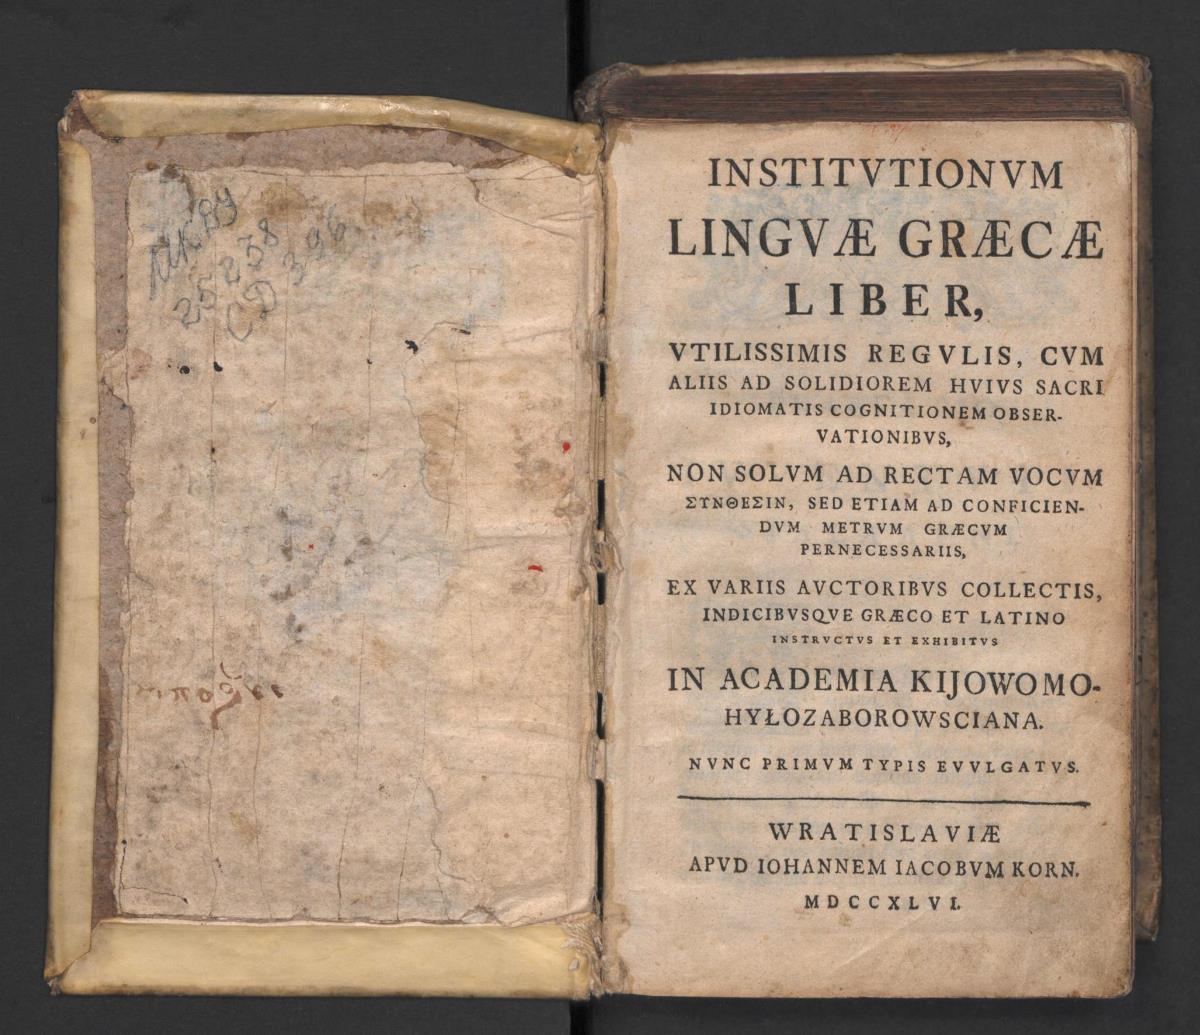 25238
CD 396
INSTITVTIONVM
LINGVÆ GRÆCÆ
LIBER,
VTILISSIMIS REGVLIS, CVM
ALIIS AD SOLIDIOREM HVIVS SACRI
IDIOMATIS COGNITIONEM OBSER-
VATIONIBVS,
NON SOLVM AD RECTAM VOCVM
ΣΥΝΘΕΣΙΝ, SED ETIAM AD CONFICIEN-
DVM METRVM GRÆCVM
PERNECESSARIIS,
EX VARIIS AVCTORIBVS COLLECTIS,
INDICIBVSQVE GRÆCO ET LATINO
INSTRVCTVS ET EXHIBITVS
IN ACADEMIA KIJOWOMO-
HYŁOZABOROWSCIANA.
NVNC PRIMVM TYPIS EVVLGATVS.
WRATISLAVIÆ
APVD IOHANNEM IACOBVM KORN.
MDCCXLVI.